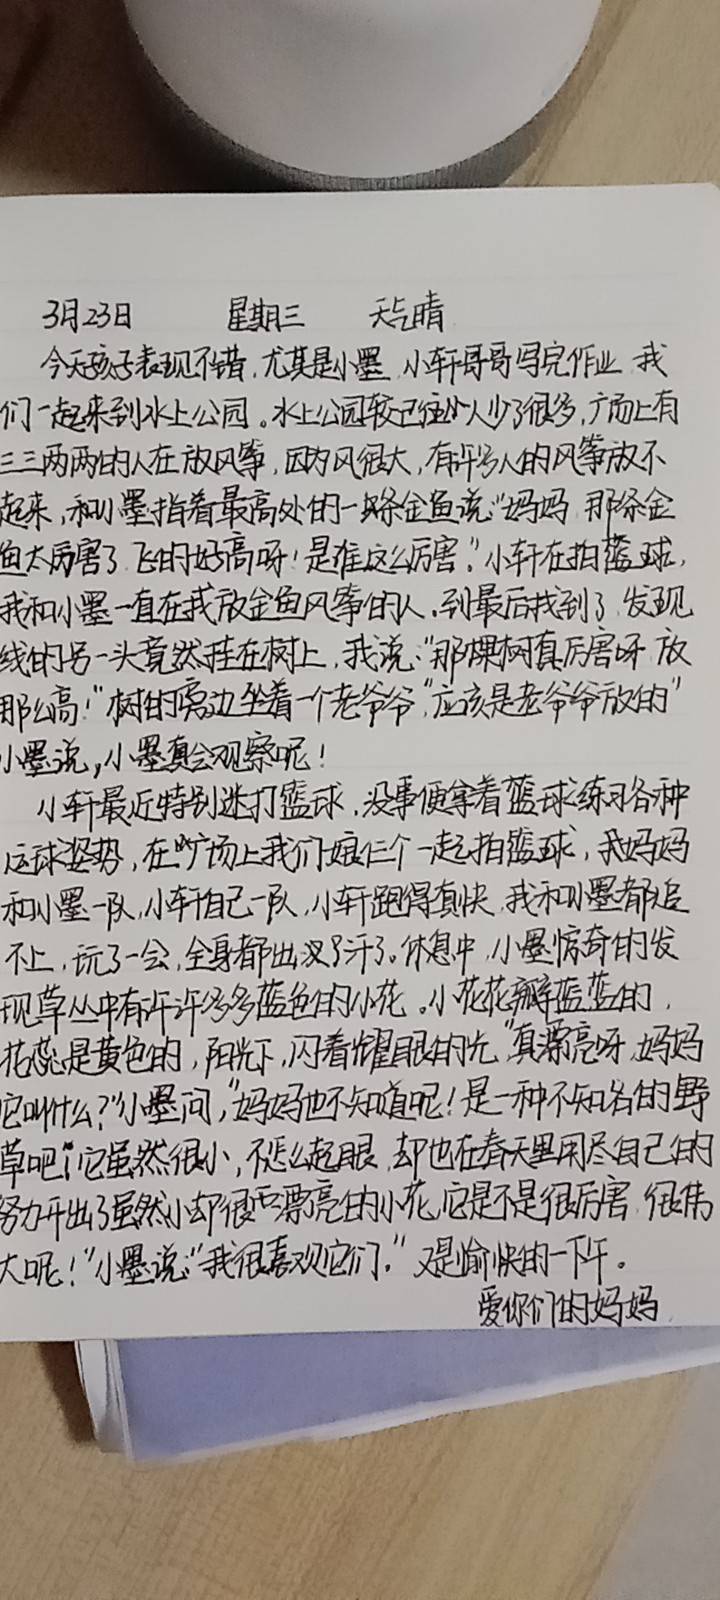 3月23日 星期三 天气晴
今天孩子表现不错,尤其是小墨,小轩哥哥写完作业,我
们一起来到水上公园。水上公园较已往少人少了很多,广场上有
三三两两的人在放风筝,因为风很大,有许多人的风筝放不
起来,和小墨指着最高处的一条金鱼说:“妈妈,那条金
鱼太厉害了,飞的好高呀!是谁这么厉害。”小轩在拍蓝球,
我和小墨一直在找放金鱼风筝的人,到最后找到了,发现
线的另一头竟然挂在树上,我说:“那棵树真厉害呀,放
那么高!”树的旁边坐着一个老爷爷,“应该是老爷爷放的”
小墨说,小墨真会观察呢!
小轩最近特别迷打篮球,没事便拿着篮球练习各种
运球姿势,在广场上我们娘仨个一起拍篮球,我妈妈
和小墨一队,小轩自己一队,小轩跑得真快,我和小墨都追
不上,玩了一会,全身都出汗了。休息中,小墨惊奇的发
现草丛中有许许多多蓝色的小花。小花花瓣蓝蓝的,
花蕊是黄色的,阳光下,闪着耀眼的光,“真漂亮呀,妈妈
它叫什么?”小墨问,“妈妈也不知道呢!是一种不知名的野
草吧!它虽然很小,不怎么起眼,却也在春天里用尽自己的
努力开出了虽然小却很漂亮的小花,它是不是很厉害,很伟
大呢!”小墨说:“我很喜欢它们。”又是愉快的一下午。
爱你们的妈妈